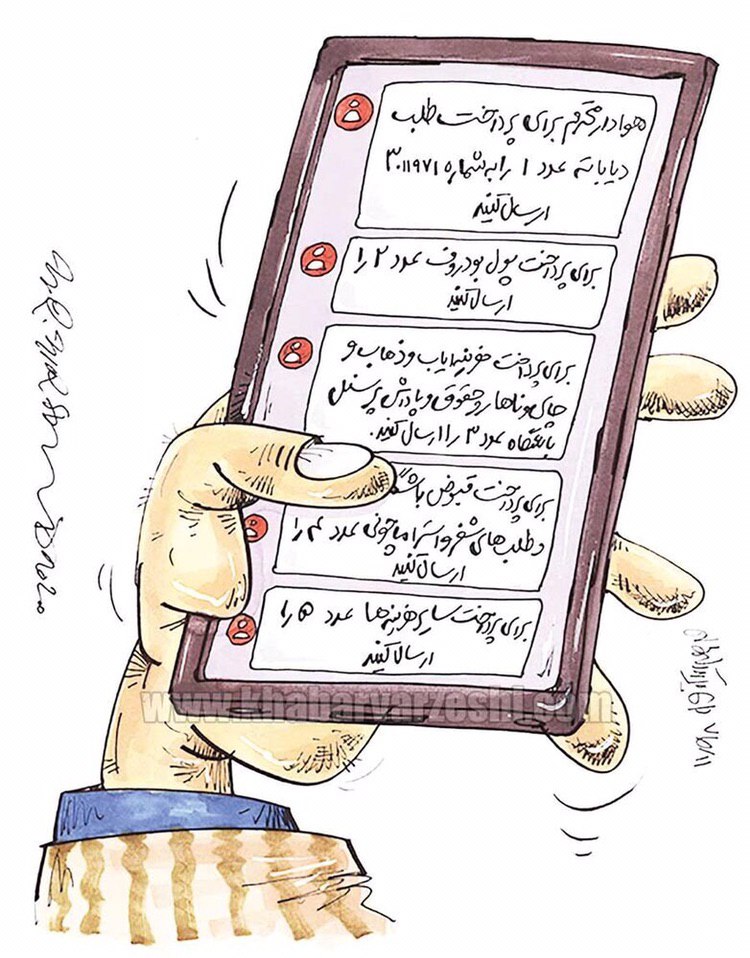 هوادار محترم برای پرداخت طلب
دیاباته عدد ۱ را به شماره ۳۰۱۱۹۷۱
ارسال کنید
برای پرداخت پول بودروف عدد ۲ را
ارسال کنید
برای پرداخت هزینه ایاب و ذهاب و
چای و ناهار و حقوق و پاداش پرسنل
باشگاه عدد ۳ را ارسال کنید.
برای پرداخت قبوض باشگ
و طلب‌های شفر و استراماچونی عدد ۴ را
ارسال کنید
برای پرداخت سایر هزینه‌ها عدد ۵ را
ارسال کنید
www.khabarvarzeshi.com